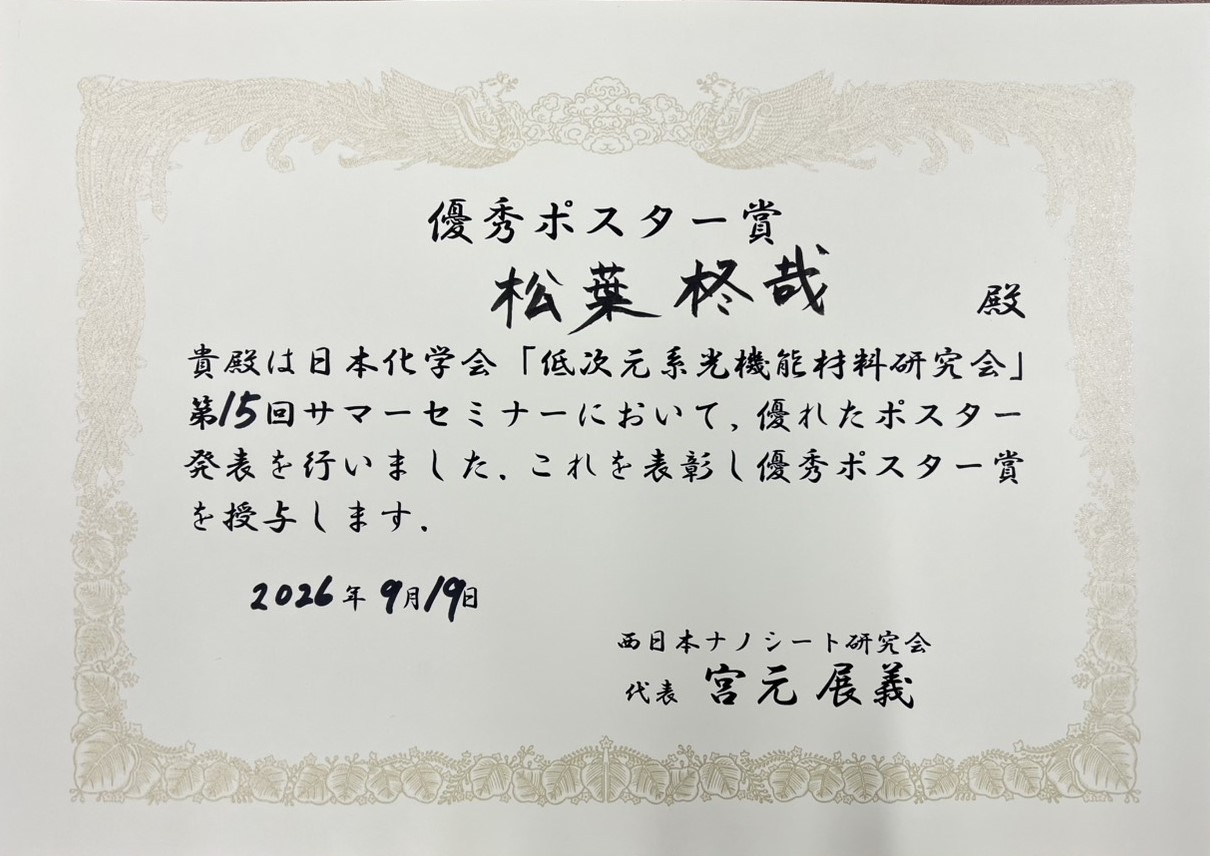 優秀ポスター賞
松葉 柊哉 殿
貴殿は日本化学会「低次元系光機能材料研究会」
第15回サマーセミナーにおいて,優れたポスター
発表を行いました.これを表彰し優秀ポスター賞
を授与します.
2026年9月19日
西日本ナノシート研究会
代表 宮元 展義